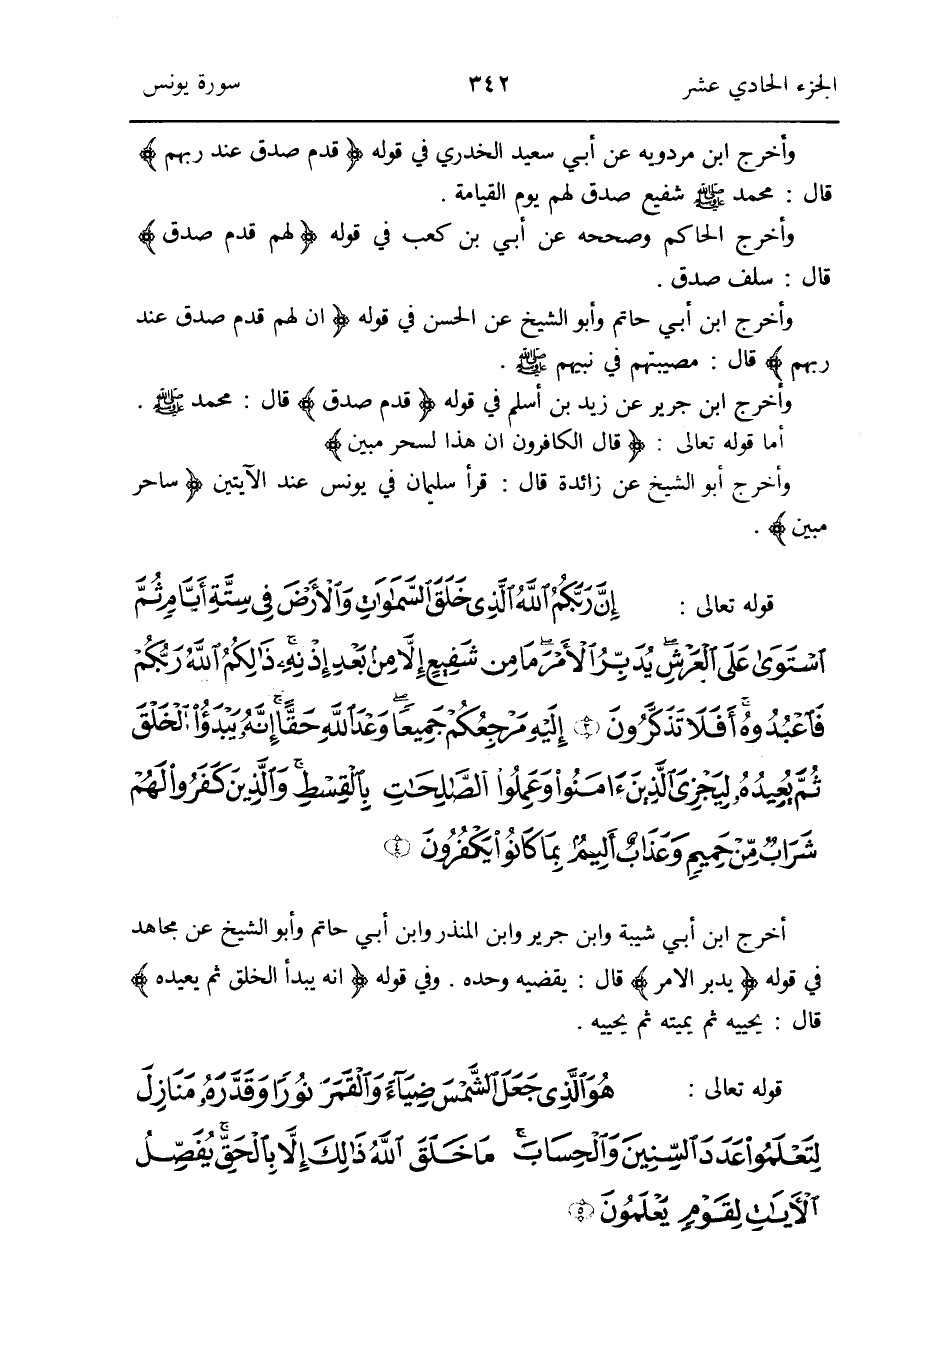 الجزء الحادي عشر ٣٤٢ سورة يونس
وأخرج ابن مردويه عن أبي سعيد الخدري في قوله ﴿ قدم صدق عند ربهم ﴾
قال : محمد ﷺ شفيع صدق لهم يوم القيامة .
وأخرج الحاكم وصححه عن أبي بن كعب في قوله ﴿ لهم قدم صدق ﴾
قال : سلف صدق .
وأخرج ابن أبي حاتم وأبو الشيخ عن الحسن في قوله ﴿ ان لهم قدم صدق عند
ربهم ﴾ قال : مصيبتهم في نبيهم ﷺ .
وأخرج ابن جرير عن زيد بن أسلم في قوله ﴿ قدم صدق ﴾ قال : محمد ﷺ .
أما قوله تعالى : ﴿ قال الكافرون ان هذا لسحر مبين ﴾
وأخرج أبو الشيخ عن زائدة قال : قرأ سليمان في يونس عند الآيتين ﴿ ساحر
مبين ﴾ .
قوله تعالى : إِنَّ رَبَّكُمُ ٱللَّهُ ٱلَّذِى خَلَقَ ٱلسَّمَٰوَٰتِ وَٱلۡأَرۡضَ فِى سِتَّةِ أَيَّامٖ ثُمَّ
ٱسۡتَوَىٰ عَلَى ٱلۡعَرۡشِۖ يُدَبِّرُ ٱلۡأَمۡرَۖ مَا مِن شَفِيعٍ إِلَّا مِنۢ بَعۡدِ إِذۡنِهِۦۚ ذَٰلِكُمُ ٱللَّهُ رَبُّكُمۡ
فَٱعۡبُدُوهُۚ أَفَلَا تَذَكَّرُونَ ٣ إِلَيۡهِ مَرۡجِعُكُمۡ جَمِيعٗاۖ وَعۡدَ ٱللَّهِ حَقًّاۚ إِنَّهُۥ يَبۡدَؤُاْ ٱلۡخَلۡقَ
ثُمَّ يُعِيدُهُۥ لِيَجۡزِىَ ٱلَّذِينَ ءَامَنُواْ وَعَمِلُواْ ٱلصَّٰلِحَٰتِ بِٱلۡقِسۡطِۚ وَٱلَّذِينَ كَفَرُواْ لَهُمۡ
شَرَابٞ مِّنۡ حَمِيمٖ وَعَذَابٌ أَلِيمُۢ بِمَا كَانُواْ يَكۡفُرُونَ ٤
أخرج ابن أبي شيبة وابن جرير وابن المنذر وابن أبي حاتم وأبو الشيخ عن مجاهد
في قوله ﴿ يدبر الامر ﴾ قال : يقضيه وحده . وفي قوله ﴿ انه يبدأ الخلق ثم يعيده ﴾
قال : يحييه ثم يميته ثم يحييه .
قوله تعالى : هُوَ ٱلَّذِى جَعَلَ ٱلشَّمۡسَ ضِيَآءٗ وَٱلۡقَمَرَ نُورٗا وَقَدَّرَهُۥ مَنَازِلَ
لِتَعۡلَمُواْ عَدَدَ ٱلسِّنِينَ وَٱلۡحِسَابَۚ مَا خَلَقَ ٱللَّهُ ذَٰلِكَ إِلَّا بِٱلۡحَقِّۚ يُفَصِّلُ
ٱلۡأٓيَٰتِ لِقَوۡمٖ يَعۡلَمُونَ ٥